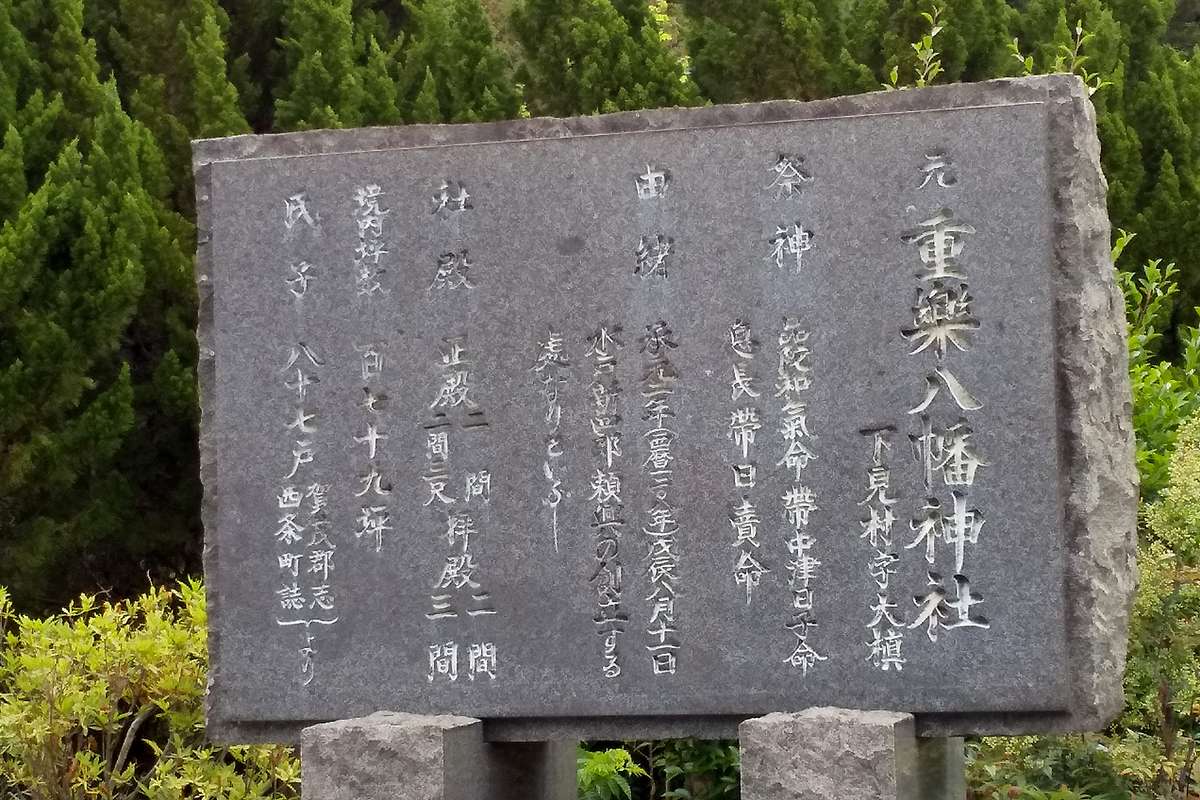 元 重樂八幡神社
下見村字大槙
祭神 品陀和氣命 帶中津日子命
息長帶日賣命
由緒 承元二年(西暦一二〇八年)戊辰八月十一日
水戸新四郎頼興の創立する
處なりといふ
社殿 正殿 二間 二間三尺 拝殿 二間 三間
境内坪数 百七十九坪
氏子 八十七戸 賀茂郡志 西条町誌 より